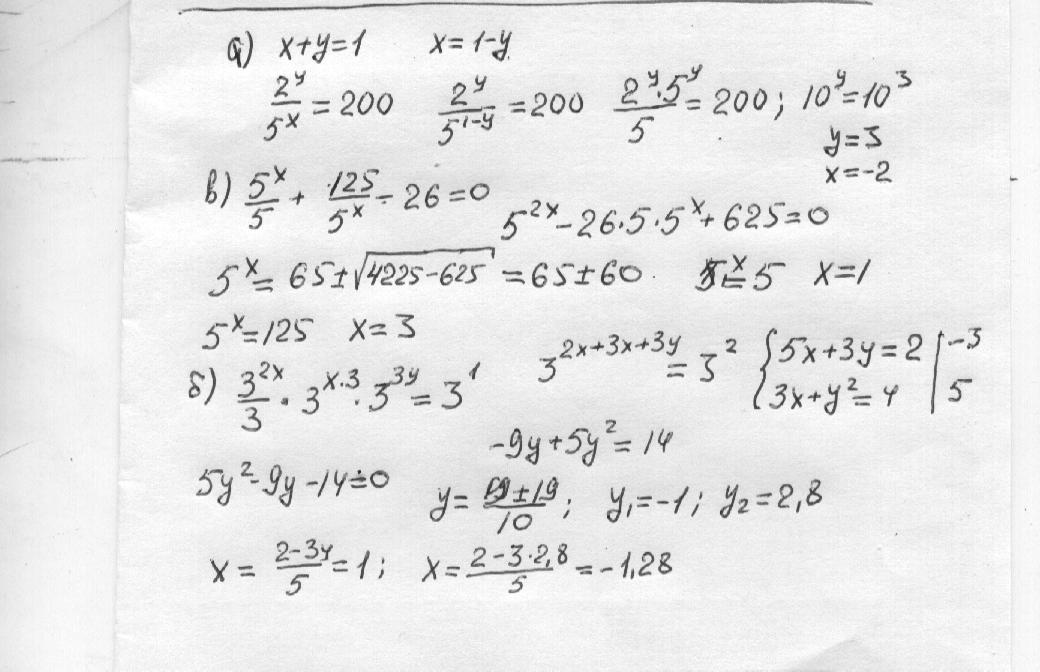 а) x+y=1 x=1-y
2^y/5^x = 200 2^y/5^(1-y) = 200 2^y·5^y/5 = 200; 10^y=10^3
y=3
x=-2
в) 5^x/5 + 125/5^x - 26=0
5^(2x) - 26·5·5^x + 625=0
5^x = 65±√(4225-625) = 65±60. 5^x=5 x=1
5^x=125 x=3
б) 3^(2x)/3 · 3^(x·3) · 3^(3y) = 3^1 3^(2x+3x+3y) = 3^2 {5x+3y=2 |-3
{3x+y^2=4 | 5
-9y+5y^2=14
5y^2-9y-14=0
y= (9±19)/10; y₁=-1; y₂=2,8
x = (2-3y)/5 = 1; x= (2-3·2,8)/5 = -1,28